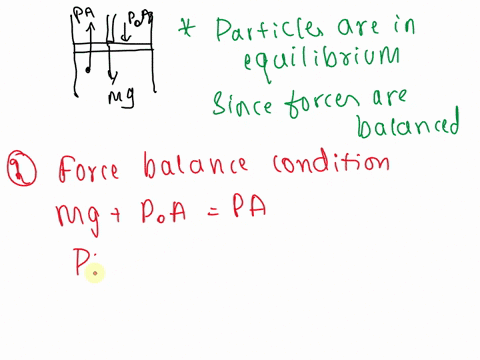 PA
P₀A
Mg
* Particles are in
equilibrium
Since forces are
balanced
① Force balance condition
Mg + P₀A = PA
P